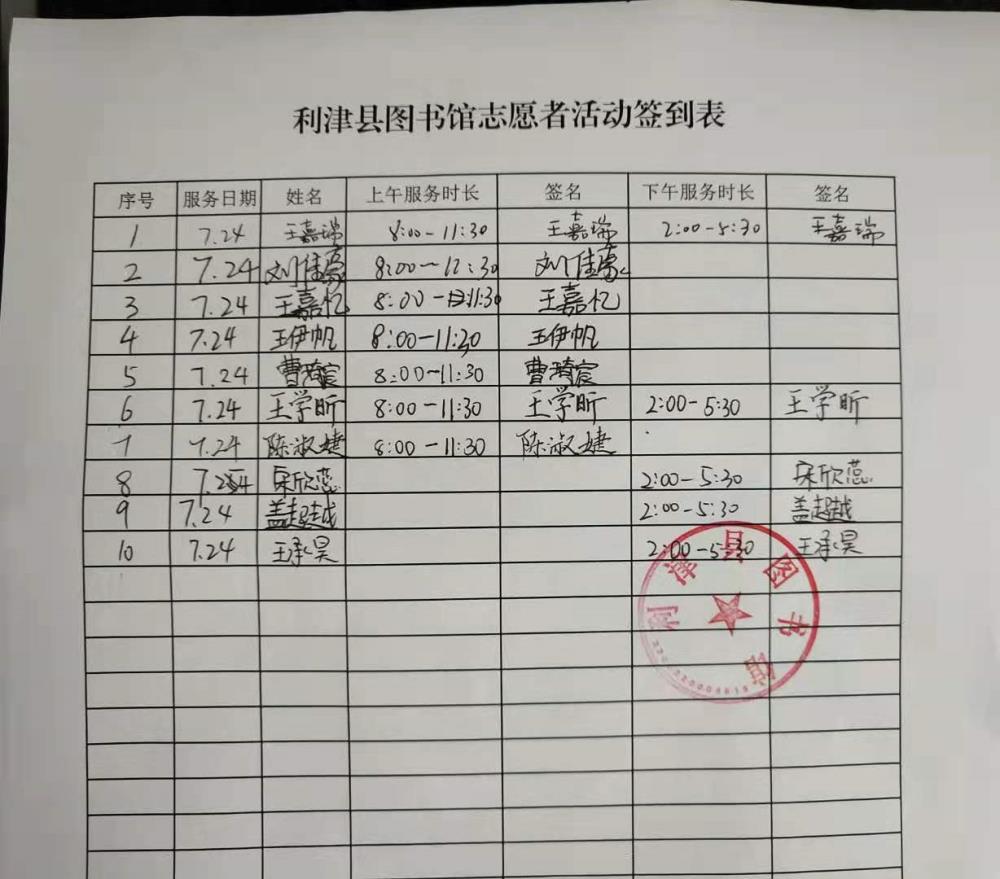 利津县图书馆志愿者活动签到表
序号 服务日期 姓名 上午服务时长 签名 下午服务时长 签名
1 7.24 王嘉瑞 8:00-11:30 王嘉瑞 2:00-5:30 王嘉瑞
2 7.24 刘佳 8:00-12:30 刘佳
3 7.24 王嘉忆 8:00-11:30 王嘉忆
4 7.24 王伊帆 8:00-11:30 王伊帆
5 7.24 曹琦宸 8:00-11:30 曹琦宸
6 7.24 王学昕 8:00-11:30 王学昕 2:00-5:30 王学昕
7 7.24 陈淑婕 8:00-11:30 陈淑婕
8 7.24 宋欣蕊 2:00-5:30 宋欣蕊
9 7.24 盖超越 2:00-5:30 盖超越
10 7.24 王承昊 2:00-5:30 王承昊
利津县图书馆